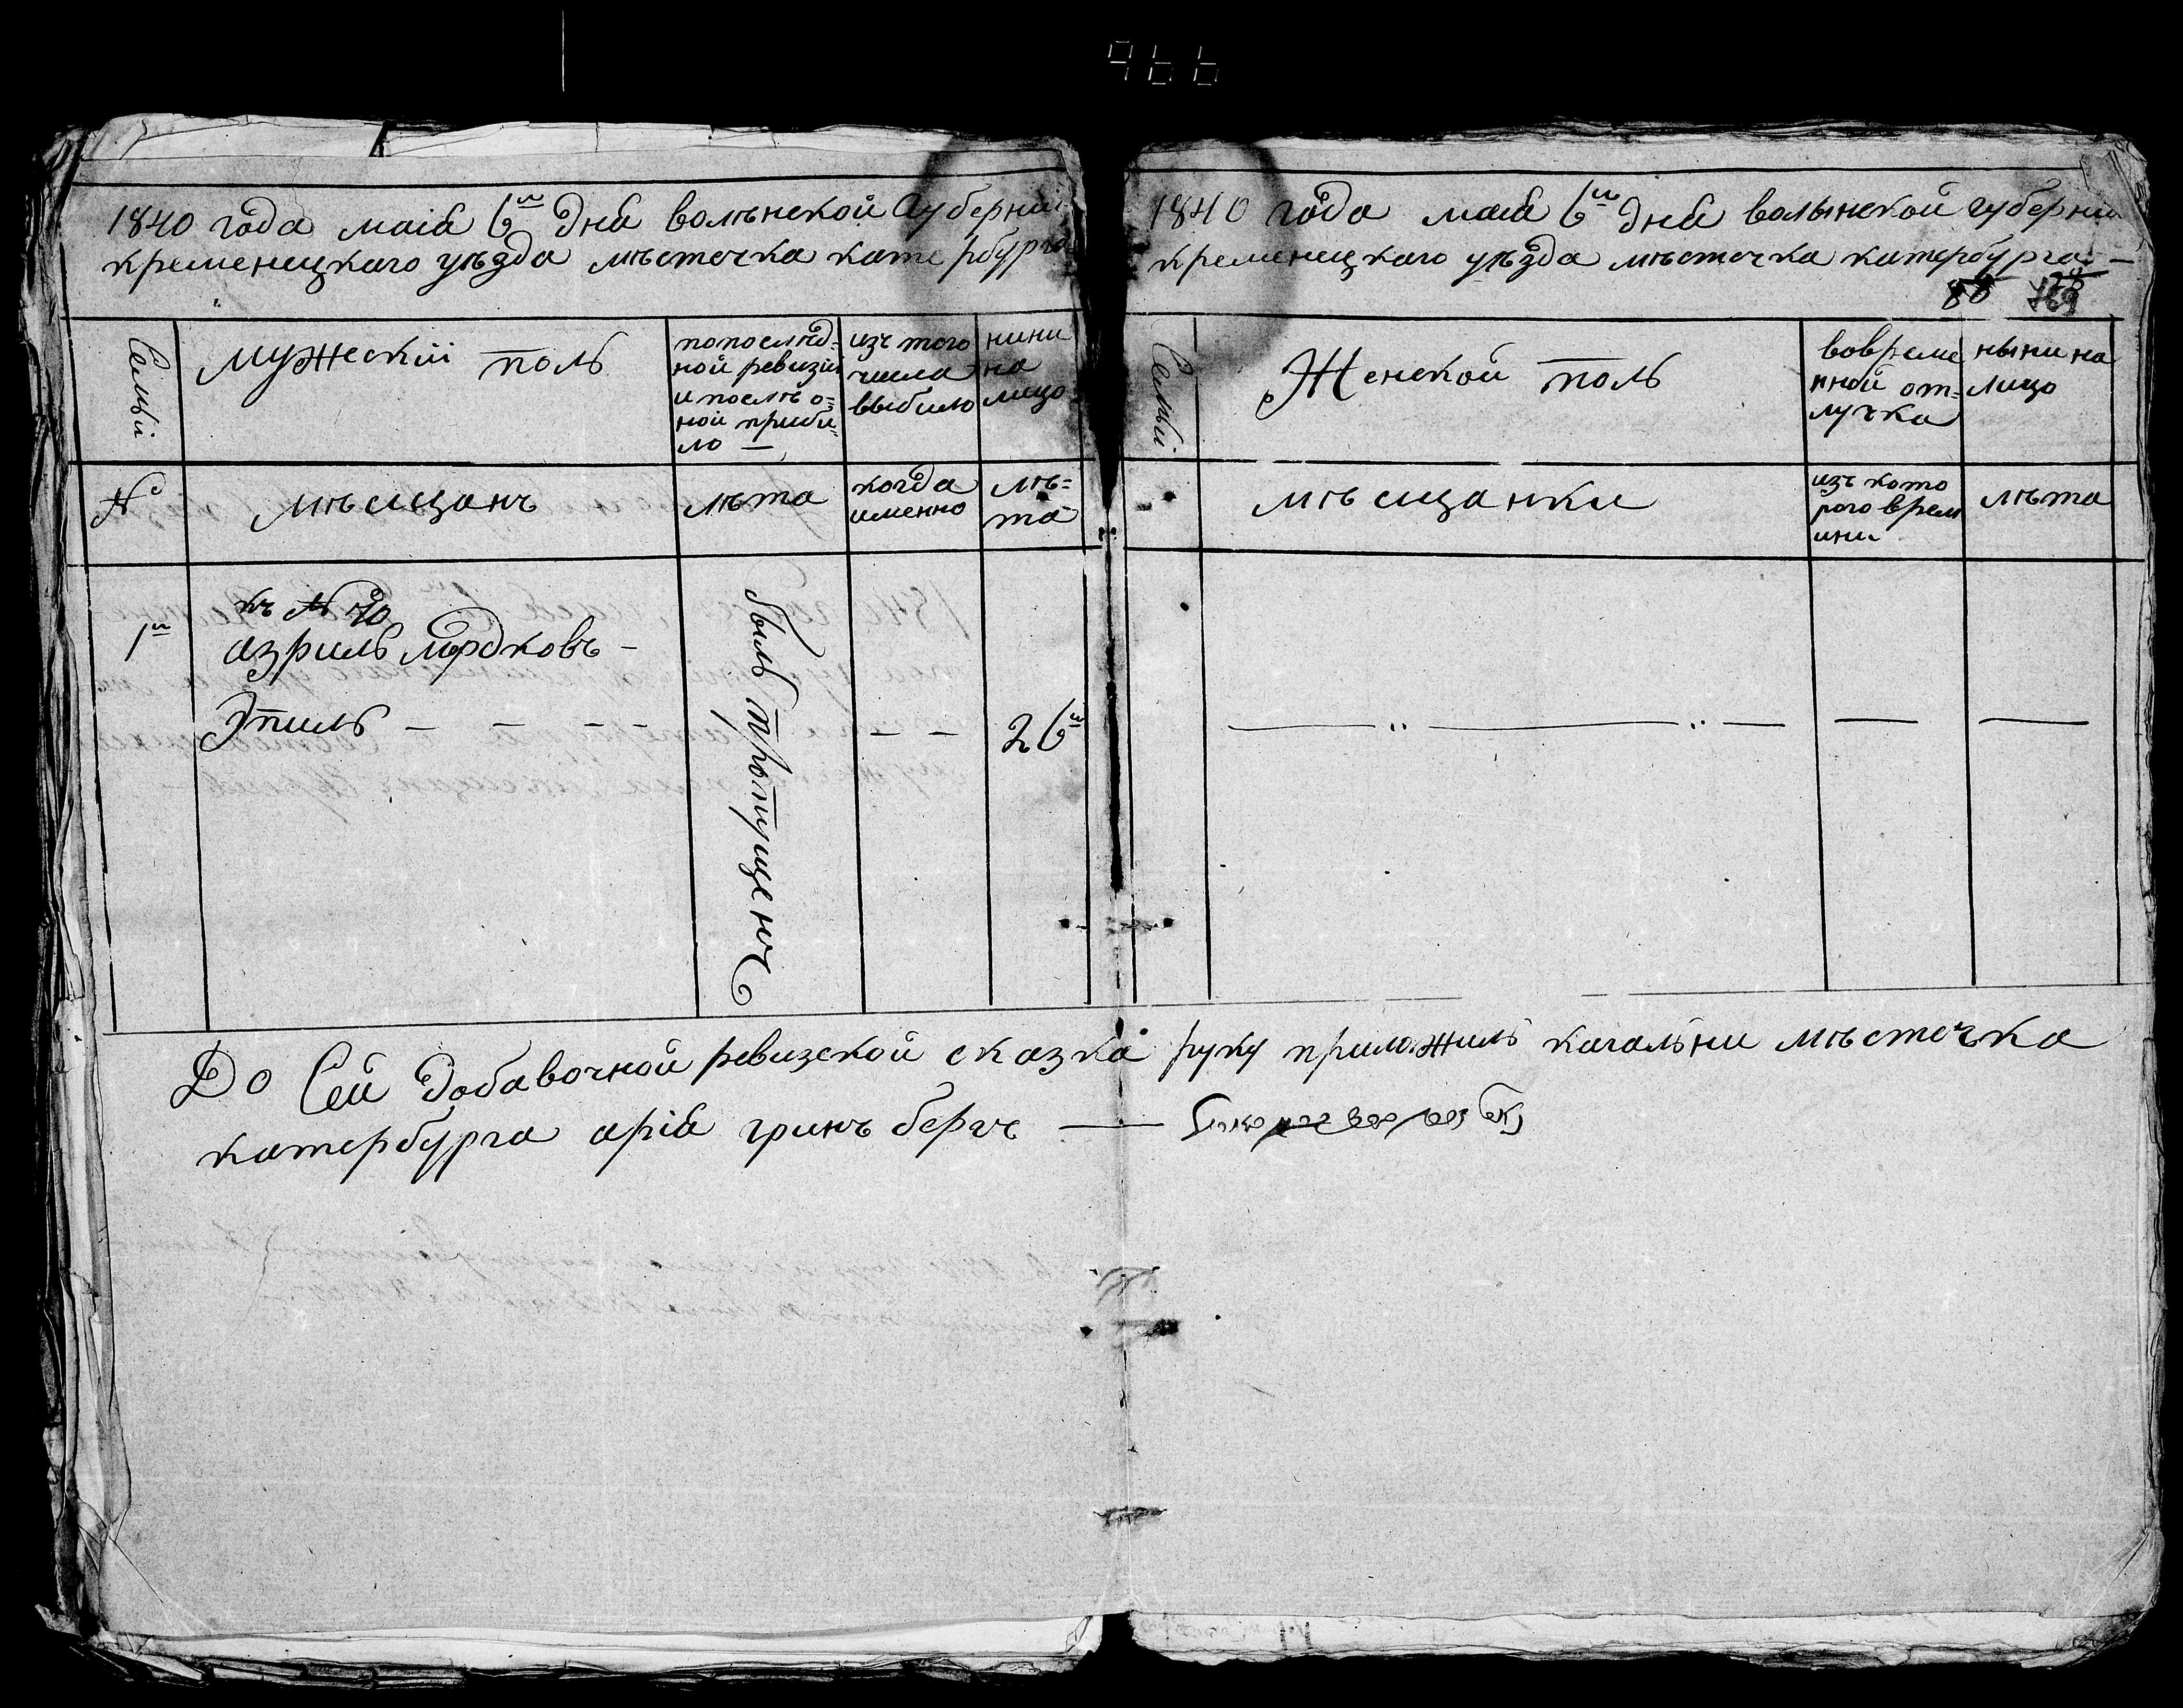 966
1840 года маіа 6го дня волынской Губерніи
кременецкаго уѣзда мѣстечка катербурга
Семьи
мужескіи полъ
попослѣд-
ной ревизіи
и послѣ о-
ной прибы-
ло —
изъ того
числа
выбыло
нини
на
лицо
№
мѣщанъ
лѣта
когда
именно
лѣ-
та
1й
къ № 70
азриль мордковъ —
Эпиль — — — —
былъ пропущенъ
— —
26й
1840 года маіа 6го дня волынской губерніи
кременецкаго уѣзда мѣстечка катербурга —
Семьи
Женской полъ
вовреме
нной от-
лучка
ныни на
лицо
мѣщанки
изъ кото
рого врем
ини
лѣта
До Сей добавочной ревизской сказка руку приложилъ кагальни мѣстечка
катербурга аріа гринъ бергъ —